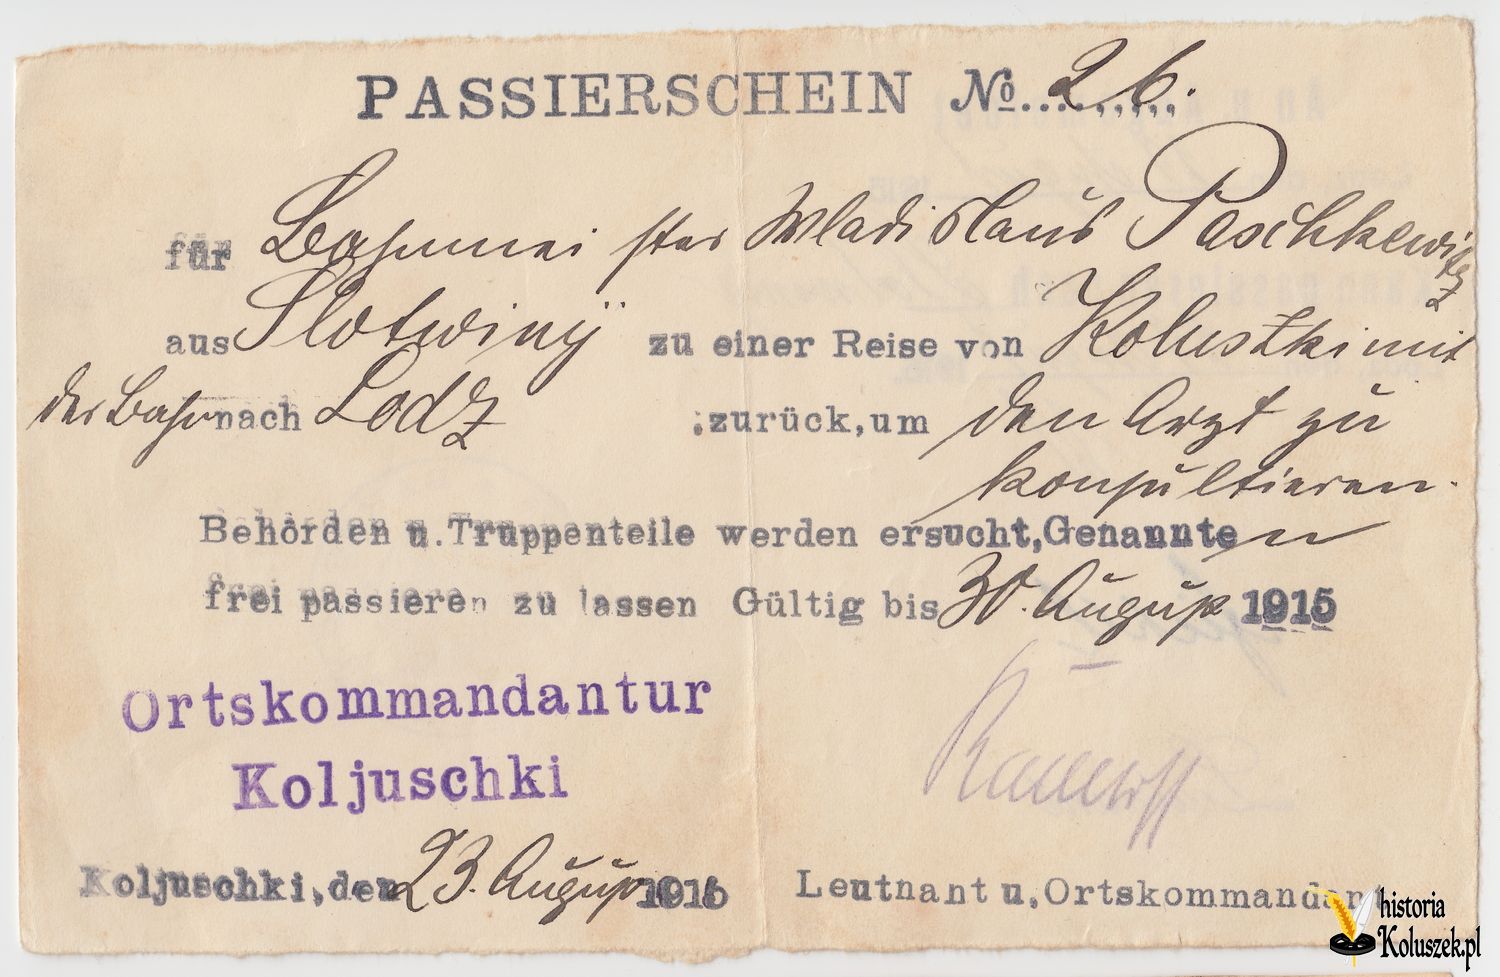 PASSIERSCHEIN No. 26.
für Bahnmeister Wladislaus Paschkewitz
aus Slotwiny zu einer Reise von Koluszki mit
der Bahn nach Lodz ;zurück,um den Arzt zu
konsultieren.
Behörden u.Truppenteile werden ersucht,Genannten
frei passieren zu lassen Gültig bis 30. August 1915
Ortskommandantur
Koljuschki
Koljuschki,den 23. August 1915
Leutnant u.Ortskommandant
historia
Koluszek.pl